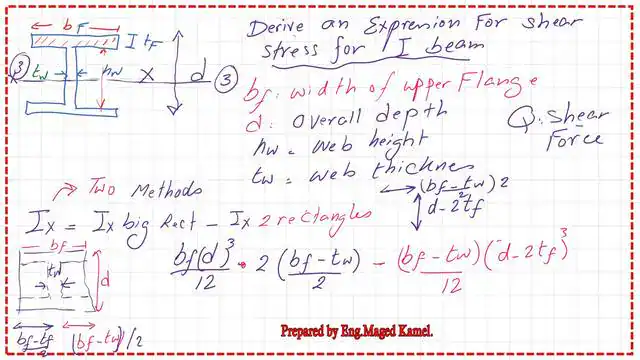 Derive an Expression For shear
stress for I beam
bF
I tF
3
tw
hw
X
d
3
bf: width of upper Flange
d: overall depth
hw = web height
tw = web thicknes
Q: shear
Force
Two Methods
(bf-tw)2
2
d-2tf
Ix = Ix big Rect - Ix 2 rectangles
bf
tw
d
bf(d)³/12 - 2 (bf-tw)/2 - (bf-tw)(d-2tf)³/12
bf-tf/2 (bf-tw)/2
Prepared by Eng.Maged Kamel.